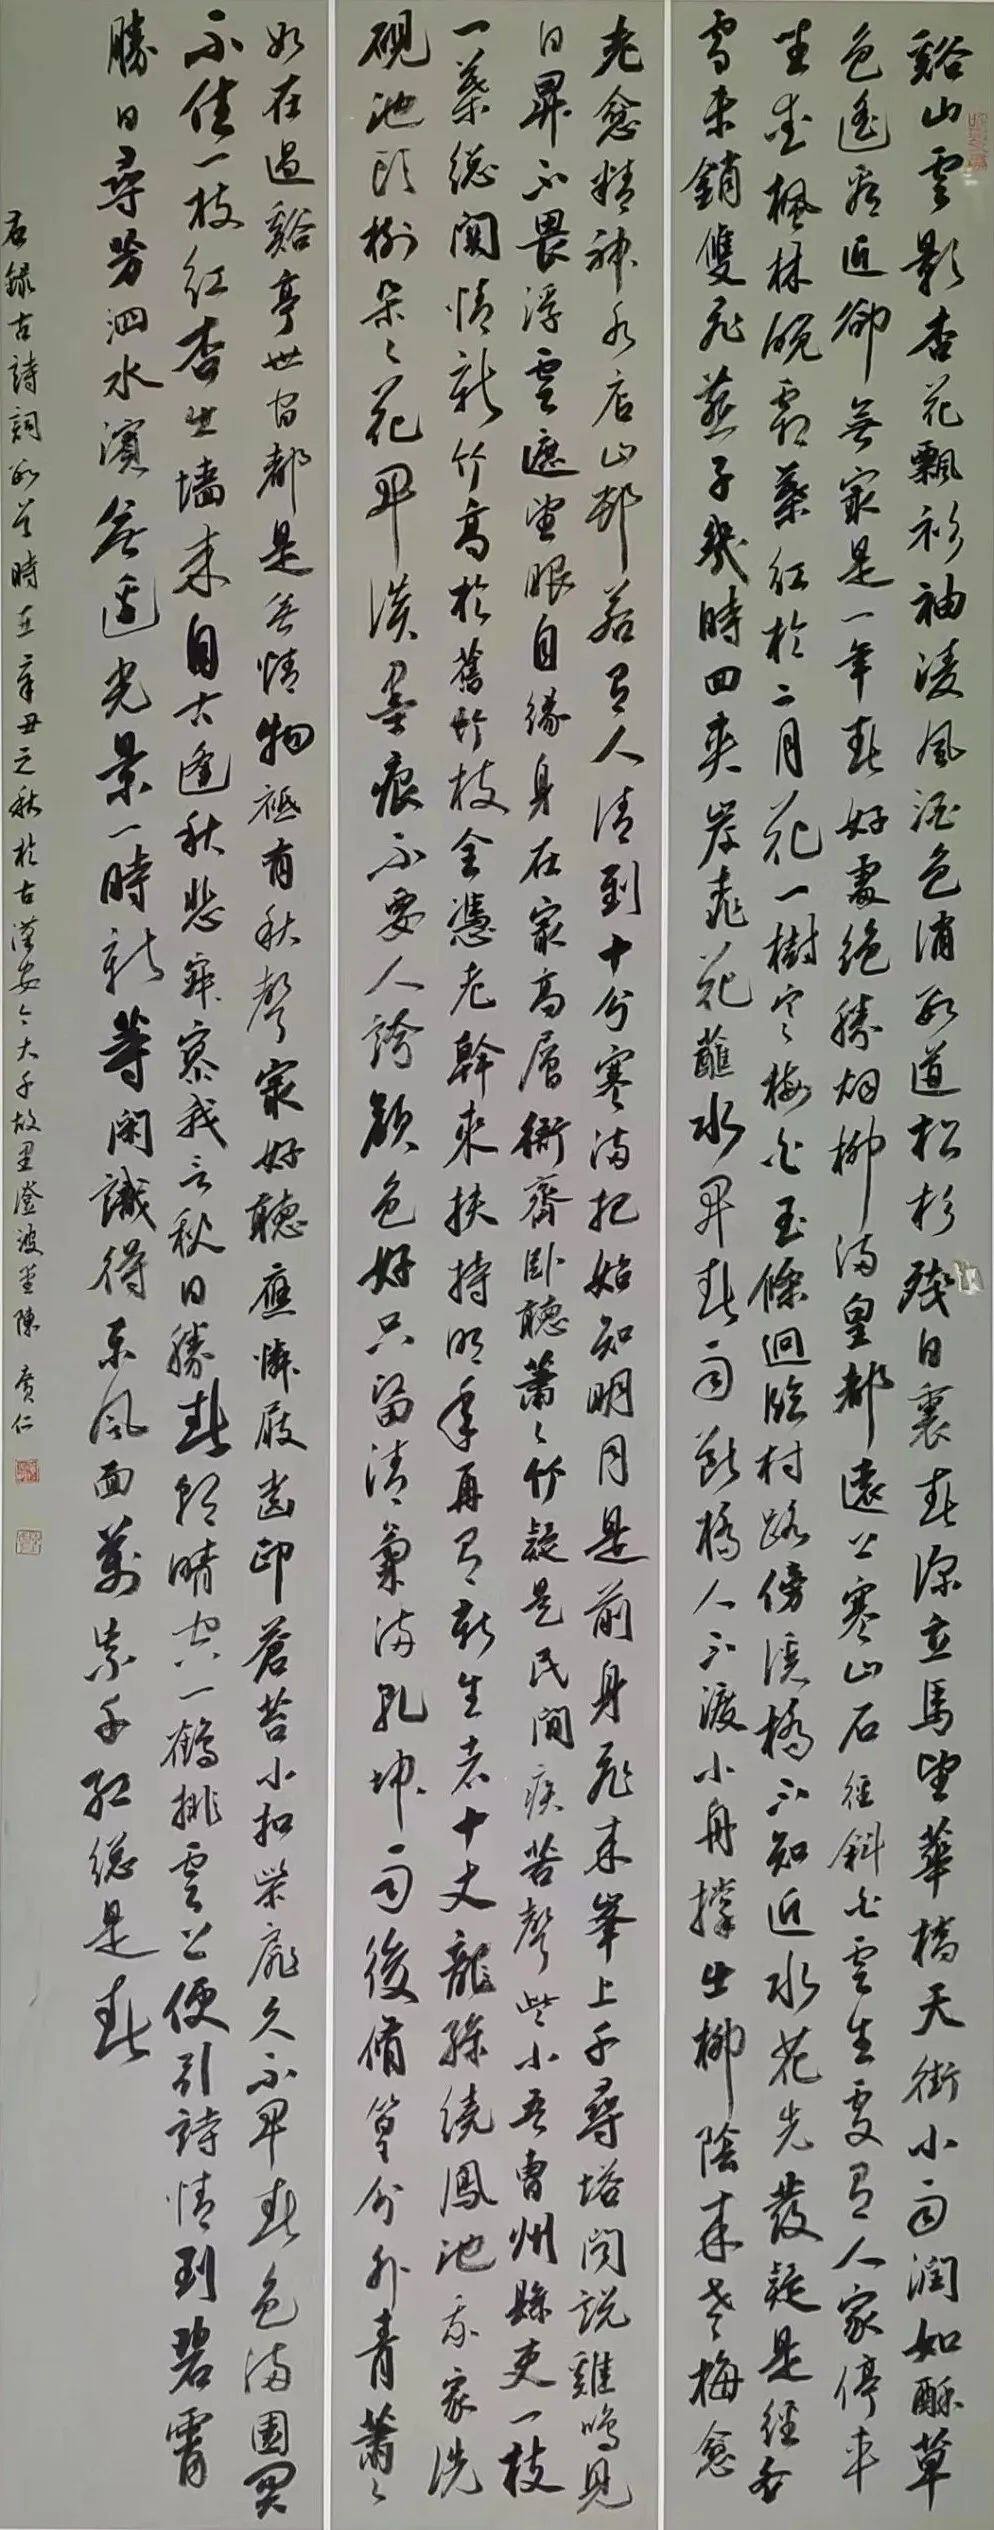 谿山雲影杏花飄衫袖凌風酒色消易道松杉殘日裏春深立馬望華橋天街小雨潤如酥草
色遙看近卻無最是一年春好處絕勝烟柳滿皇都遠上寒山石徑斜白雲生處有人家停車
坐愛楓林晚霜葉紅於二月花一樹寒梅白玉條迥臨村路傍溪橋不知近水花先發疑是經冬
雪未銷雙飛燕子幾時回夾岸桃花蘸水開春雨斷橋人不渡小舟撐出柳陰來老梅愈
老愈精神水店山邨若有人清到十分寒滿把始知明月是前身飛來峯上千尋塔聞說雞鳴見
日昇不畏浮雲遮望眼自緣身在最高層衙齋臥聽蕭〻竹疑是民間疾苦聲些小吾曹州縣吏一枝
一葉總關情新竹高於舊竹枝全憑老幹來扶持明年再有新生者十丈龍孫繞鳳池我家洗
硯池頭樹朵〻花開淡墨痕不要人誇顏色好只留清氣滿乾坤雨後脩篁分外青蕭〻
如在過谿亭世間都是無情物祗有秋聲最好聽應憐屐齒印蒼苔小扣柴扉久不開春色滿園關
不住一枝紅杏出墻來自古逢秋悲寂寥我言秋日勝春朝晴空一鶴排雲上便引詩情到碧霄
勝日尋芳泗水濱無邊光景一時新等閑識得東風面萬紫千紅總是春
右錄古詩詞數首時在辛丑之秋於古漢安今大千故里澄波堂陳廣仁